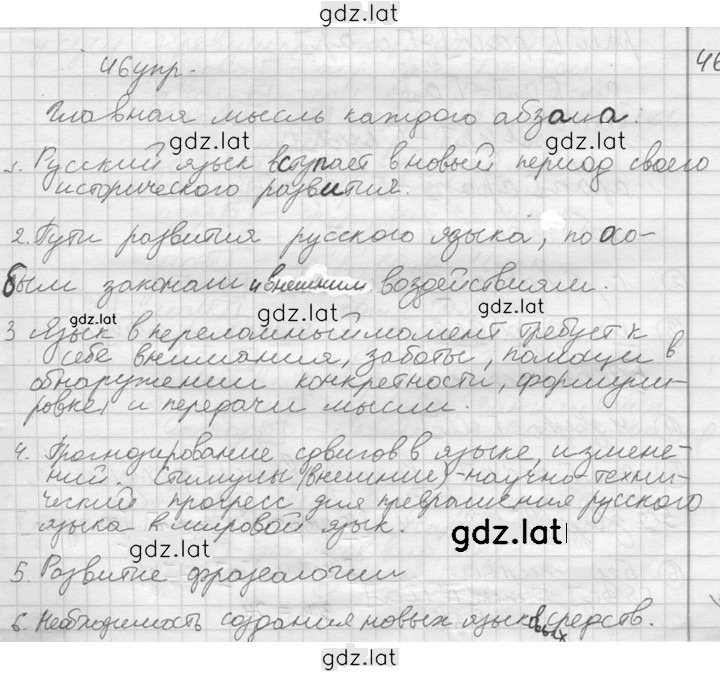 gdz.lat
46упр.
46
Главная мысль каждого абзаца:
gdz.lat
gdz.lat
1. Русский язык вступает в новый период своего
исторического развития.
2. Пути развития русского языка, по осо-
бым законам и внешним воздействиям.
gdz.lat
gdz.lat
3 Язык в переломный момент требует к
себе внимания, заботы, помощи в
обнаружении конкретности, формули-
ровке, и передачи мысли.
gdz.lat
gdz.lat
4. Прогнозирование сдвигов в языке, измене-
ний. Стимулы (внешние) - научно-техни-
ческий прогресс для превращения русского
языка в мировой язык.
gdz.lat
gdz.lat
5. Развитие фразеологии
6. Необходимость создания новых языковых средств.
gdz.lat